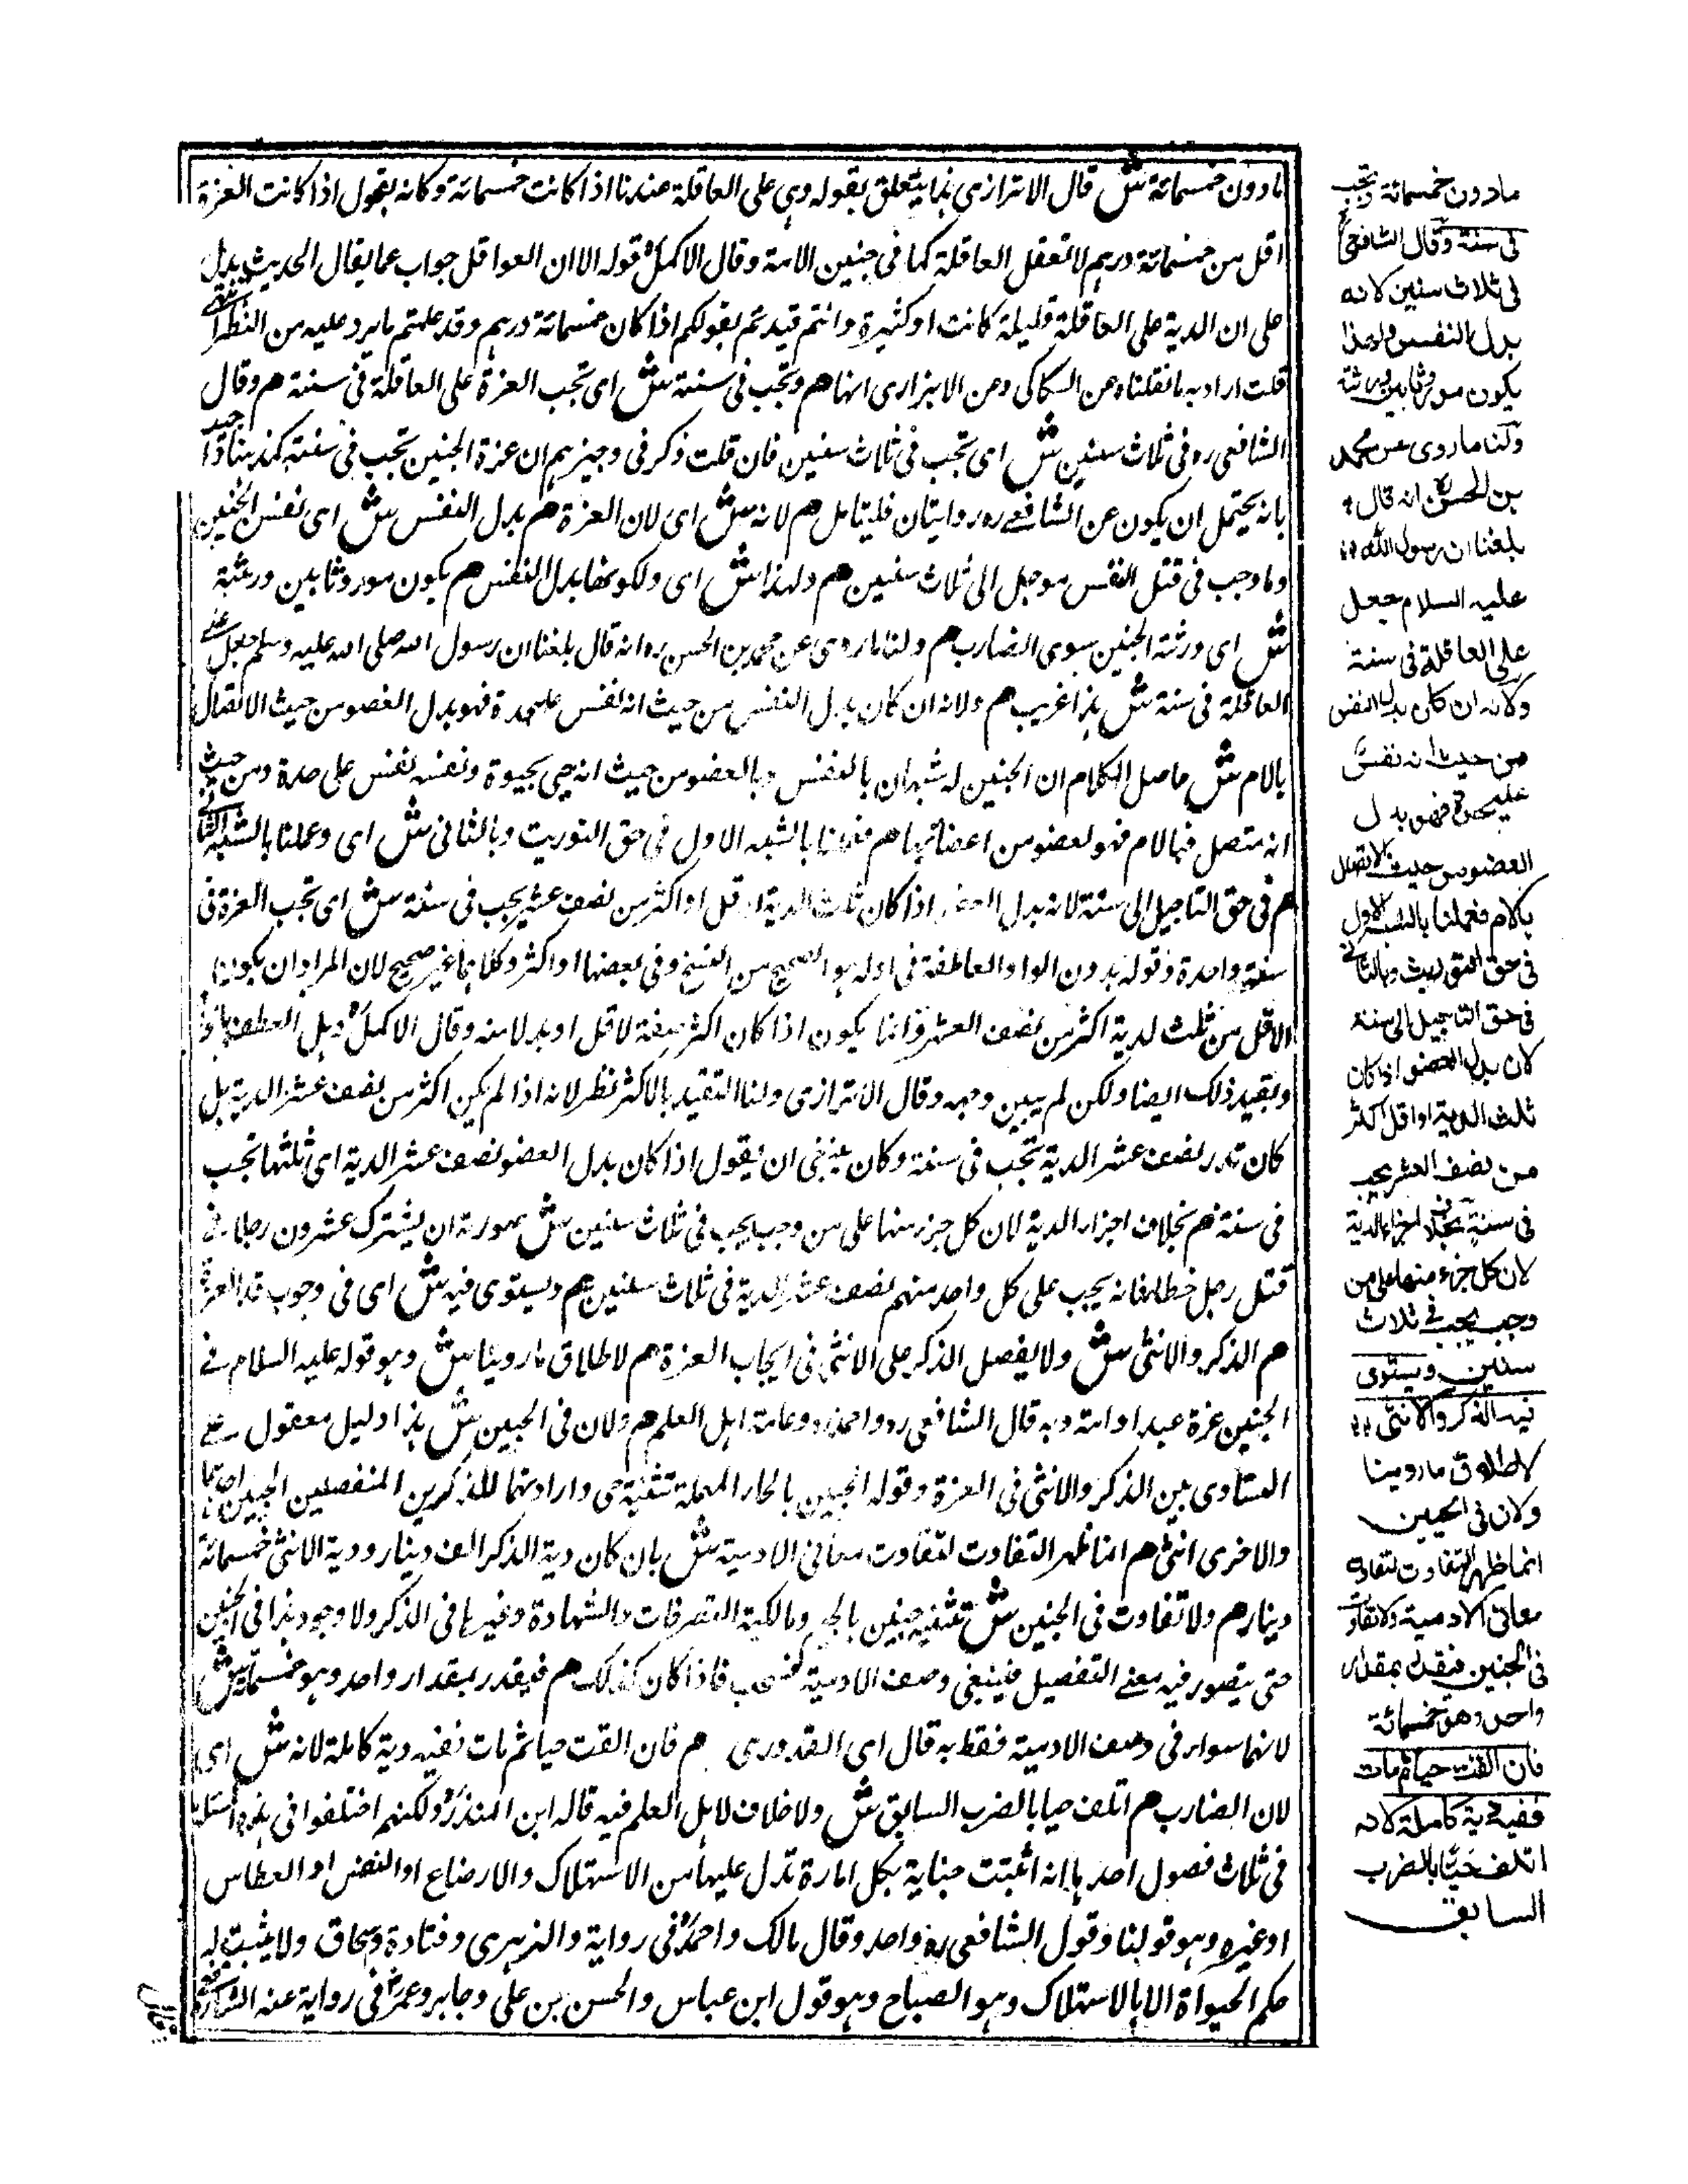 مادون خمسمائة ش قال الاترازی ہذا یتعلق بقوله وہی علی العاقلة عندنا اذا کانت خمسمائة وکانه یقول اذا کانت الغرة
اقل من خمسمائة درہم لا تعقل العاقلة کما فی جنین الامة وقال الاکمل قوله الا ان العواقل جواب عما یقال الحدیث یدل
علی ان الدیة علی العاقلة قلیلة کانت او کثیرة وانتم قیدتم بقولکم اذا کان خمسمائة درہم وقد علمتم ما یرد علیه من النظر انتهی
قلت اراد به ما نقلناه عن السکاکی وعن الاترازی انہا هم وتجب فی سنة ش ای تجب الغرة علی العاقلة فی سنة هم وقال
الشافعی ره فی ثلاث سنین ش ای تجب فی ثلاث سنین فان قلت ذکر فی وجیزہم ان غرة الجنین تجب فی سنة کمذہبنا
بانه یحتمل ان یکون عن الشافعی ره روایتان فلیتامل هم لانه ش ای لان الغرة هم بدل النفس ش ای نفس الجنین
وما وجب فی قتل النفس موجل الی ثلاث سنین هم ولہذا ش ای ولکونها بدل النفس هم یکون موروثا بین ورثته
ش ای ورثة الجنین سوی الضارب هم ولنا ما روی عن محمد بن الحسن ره انه قال بلغنا ان رسول الله صلی الله علیه وسلم جعل علی
العاقلة فی سنة ش ہذا غریب هم ولانه ان کان بدل النفس من حیث انه نفس علیحدة فهو بدل العضو من حیث الاتصال
بالام ش حاصل الکلام ان الجنین له شبهان بالنفس وبالعضو من حیث انه حی بحیوة ونفسه نفس علی حدة ومن حیث
انه متصل بالام فهو کعضو من اعضائها هم فعملنا بالشبه الاول فی حق التوریث وبالثانی ش ای وعملنا بالشبه الثانی
هم فی حق التاجیل الی سنة لانه بدل العضو اذا کان ثلث الدیة او اقل او اکثر من نصف عشر یجب فی سنة ش ای تجب الغرة فی
سنة واحدة وقوله بدون الواو العاطفة فی اوله ہو الصحیح من النسخ وفی بعضها او اکثر وکلاہما غیر صحیح لان المراد ان یکون ہذا
الاقل من ثلث الدیة اکثر من نصف العشر وانما یکون اذا کان اکثر صفة لاقل او بدلا منه وقال الاکمل وبل العطف باو
ویفید ذلک ایضا ولکن لم یبین وجهه وقال الاترازی ولنا التقید بالاکثر نظر لانه اذا لم یکن اکثر من نصف عشر الدیة بل
کان قدر نصف عشر الدیة تجب فی سنة وکان ینبغی ان یقول اذا کان بدل العضو نصف عشر الدیة ای ثلثها تجب
فی سنة هم بخلاف اجزاء الدیة لان کل جزء منها علی من وجب یجب فی ثلاث سنین ش صورته ان یشترک عشرون رجلا فی
قتل رجل خطا فانه یجب علی کل واحد منهم نصف عشر الدیة فی ثلاث سنین هم ویستوی فیه ش ای فی وجوب قدر الغرة
هم الذکر والانثی ش ولا یفصل الذکر علی الانثی فی ایجاب الغرة هم لاطلاق ما روینا ش وہو قوله علیه السلام فی
الجنین غرة عبد او امة وبه قال الشافعی ره واحمد ره وعامة اہل العلم هم ولان فی الحیین ش ہذا دلیل معقول علی
التساوی بین الذکر والانثی فی الغرة وقوله الحیین بالحاء المهملة تثنیة حی واراد بهما للذکرین المنفصلین الحیین احدهما
والاخری انثی هم انما ظهر التفاوت لتفاوت معانی الادمیة ش بان کان دیة الذکر الف دینار ودیة الانثی خمسمائة
دینار هم ولا تفاوت فی الجنین ش تثنیة جنین بالجیم ومالکیة التصرفات والشهادة وغیرہا فی الذکر ولا وجود ہذا فی الجنین
حتی یتصور فیه معنے التفصیل فینبغی وصف الادمیة فاذا کان کذلک هم فیقدر بمقدار واحد وہو خمسمائة ش
لانهما سواء فی وصف الادمیة فقط به قال ای القدوری هم فان القت حیا ثم مات ففیه دیة کاملة لانه ش ای
لان الضارب هم اتلف حیا بالضرب السابق ش ولا خلاف لاہل العلم فیه قاله ابن المنذر ولکنهم اختلفوا فی ہذه المسئلة
فی ثلاث فصول احدہا انه اثبتت جنایة بکل امارة تدل علیها من الاستهلاک والارضاع او النفس او العطاس
او غیره وہو قولنا وقول الشافعی ره واحمد وقال مالک واحمد فی روایة والزہری وقتادة واسحاق ولا یثبت له
حکم الحیواة الا بالاستهلاک وہو الصیاح وہو قول ابن عباس والحسن بن علی وجابر وعمر فی روایة عنه
مادون خمسمائة وتجب
فی سنة وقال الشافعی
فی ثلاث سنین لانه
بدل النفس ولهذا
یکون موروثا بین ورثته
ولنا ماروی عن محمد
بن الحسن انه قال
بلغنا ان رسول الله
علیه السلام جعل
علی العاقلة فی سنة
ولانه ان کان بدل النفس
من حیث انه نفس
علیحدة فهو بدل
العضو من حیث الاتصال
بالام فعملنا بالشبه الاول
فی حق التوریث وبالثانی
فی حق التاجیل الی سنة
لان بدل العضو اذا کان
ثلث الدیة او اقل اکثر
من نصف العشر یجب
فی سنة بخلاف اجزاء الدیة
لان کل جزء منها علی من
وجب یجب فی ثلاث
سنین ویستوی
فیه الذکر والانثی
لاطلاق ما روینا
ولان فی الحیین
انما ظهر التفاوت لتفاوت
معانی الادمیة ولا تفاوت
فی الجنین فیقدر بمقدار
واحد وهو خمسمائة
فان القت حیا ثم مات
ففیه دیة کاملة لانه
اتلف حیا بالضرب
السابق